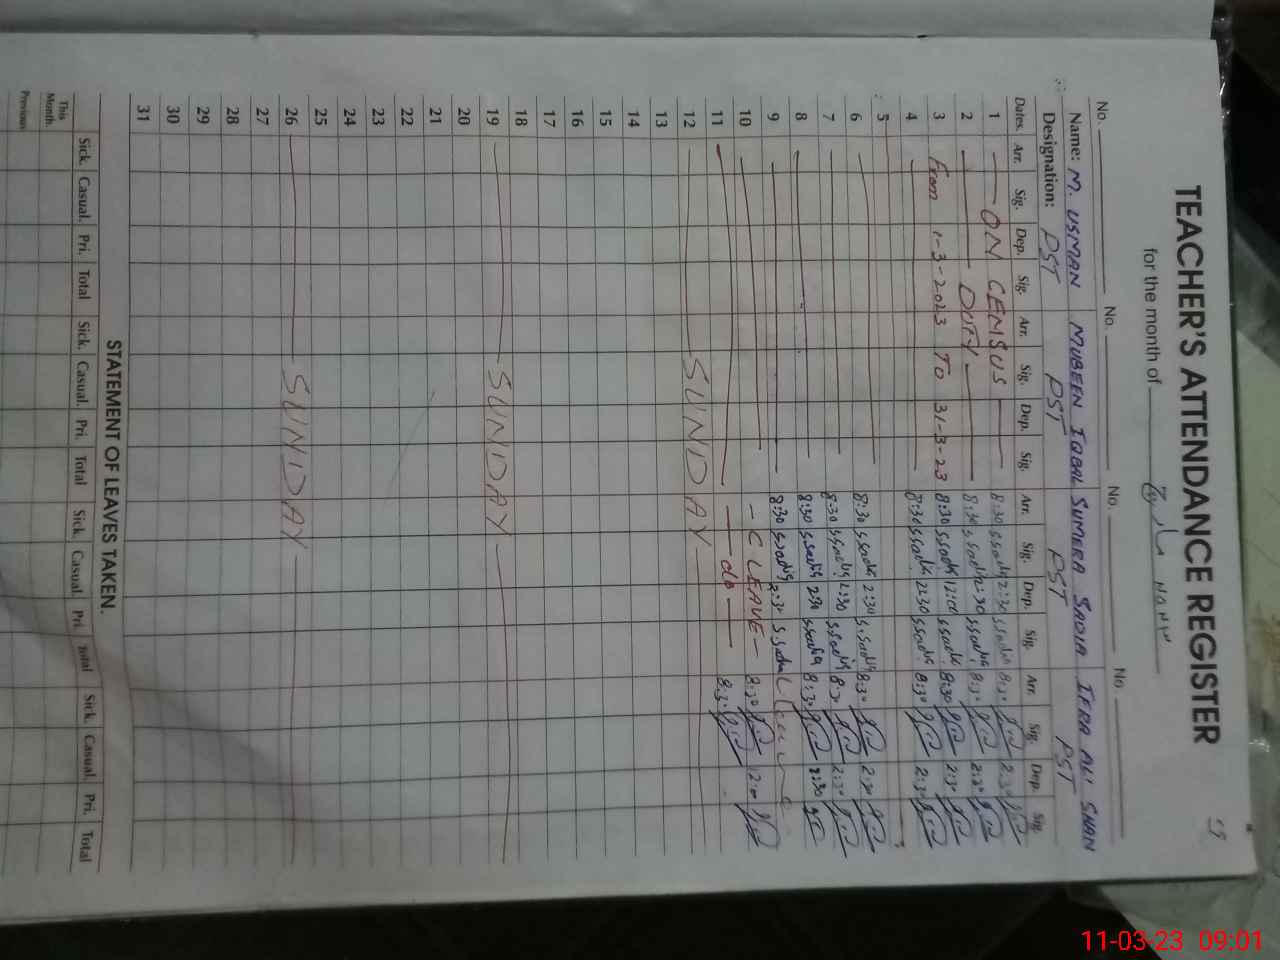 TEACHER'S ATTENDANCE REGISTER
for the month of
No. No. No. No.
Name: M. USMAN MUBEEN IQBAL SUMERA SADIA IFRA ALI SHAN
Designation: PST PST PST PST
Dates. Arr. Sig. Dep. Sig. Arr. Sig. Dep. Sig. Arr. Sig. Dep. Sig. Arr. Sig. Dep. Sig.
1 ON CENSUS 8:30 2:30 8:30 2:30
2 DUTY 8:30 2:30 8:30 2:30
3 From 1-3-2023 TO 31-3-23 8:30 12:00 8:30 2:30
4 8:30 2:30 8:30 2:30
5
6 8:30 2:30 8:30 2:30
7 8:30 2:30 8:30 2:30
8 8:30 2:30 8:30 2:30
9 8:30 2:30
10 - C LEAVE - 8:30 12:0
11 do 8:30
12 SUNDAY
13
14
15
16
17
18
19 SUNDAY
20
21
22
23
24
25
26 SUNDAY
27
28
29
30
31
STATEMENT OF LEAVES TAKEN.
Sick. Casual. Pri. Total Sick. Casual. Pri. Total Sick. Casual. Pri. Total Sick. Casual. Pri. Total
This Month.
Previous
11-03-23 09:01